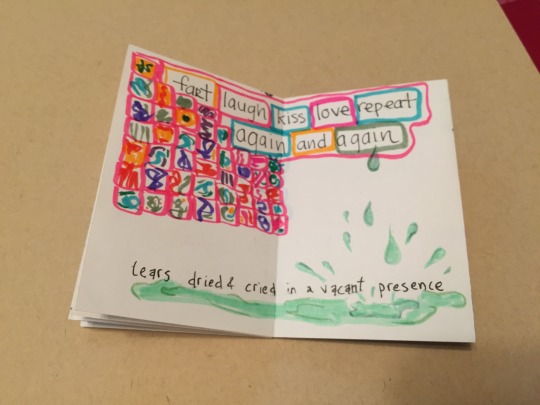 fart laugh kiss love repeat
again and again
tears dried & cried in a vacant presence